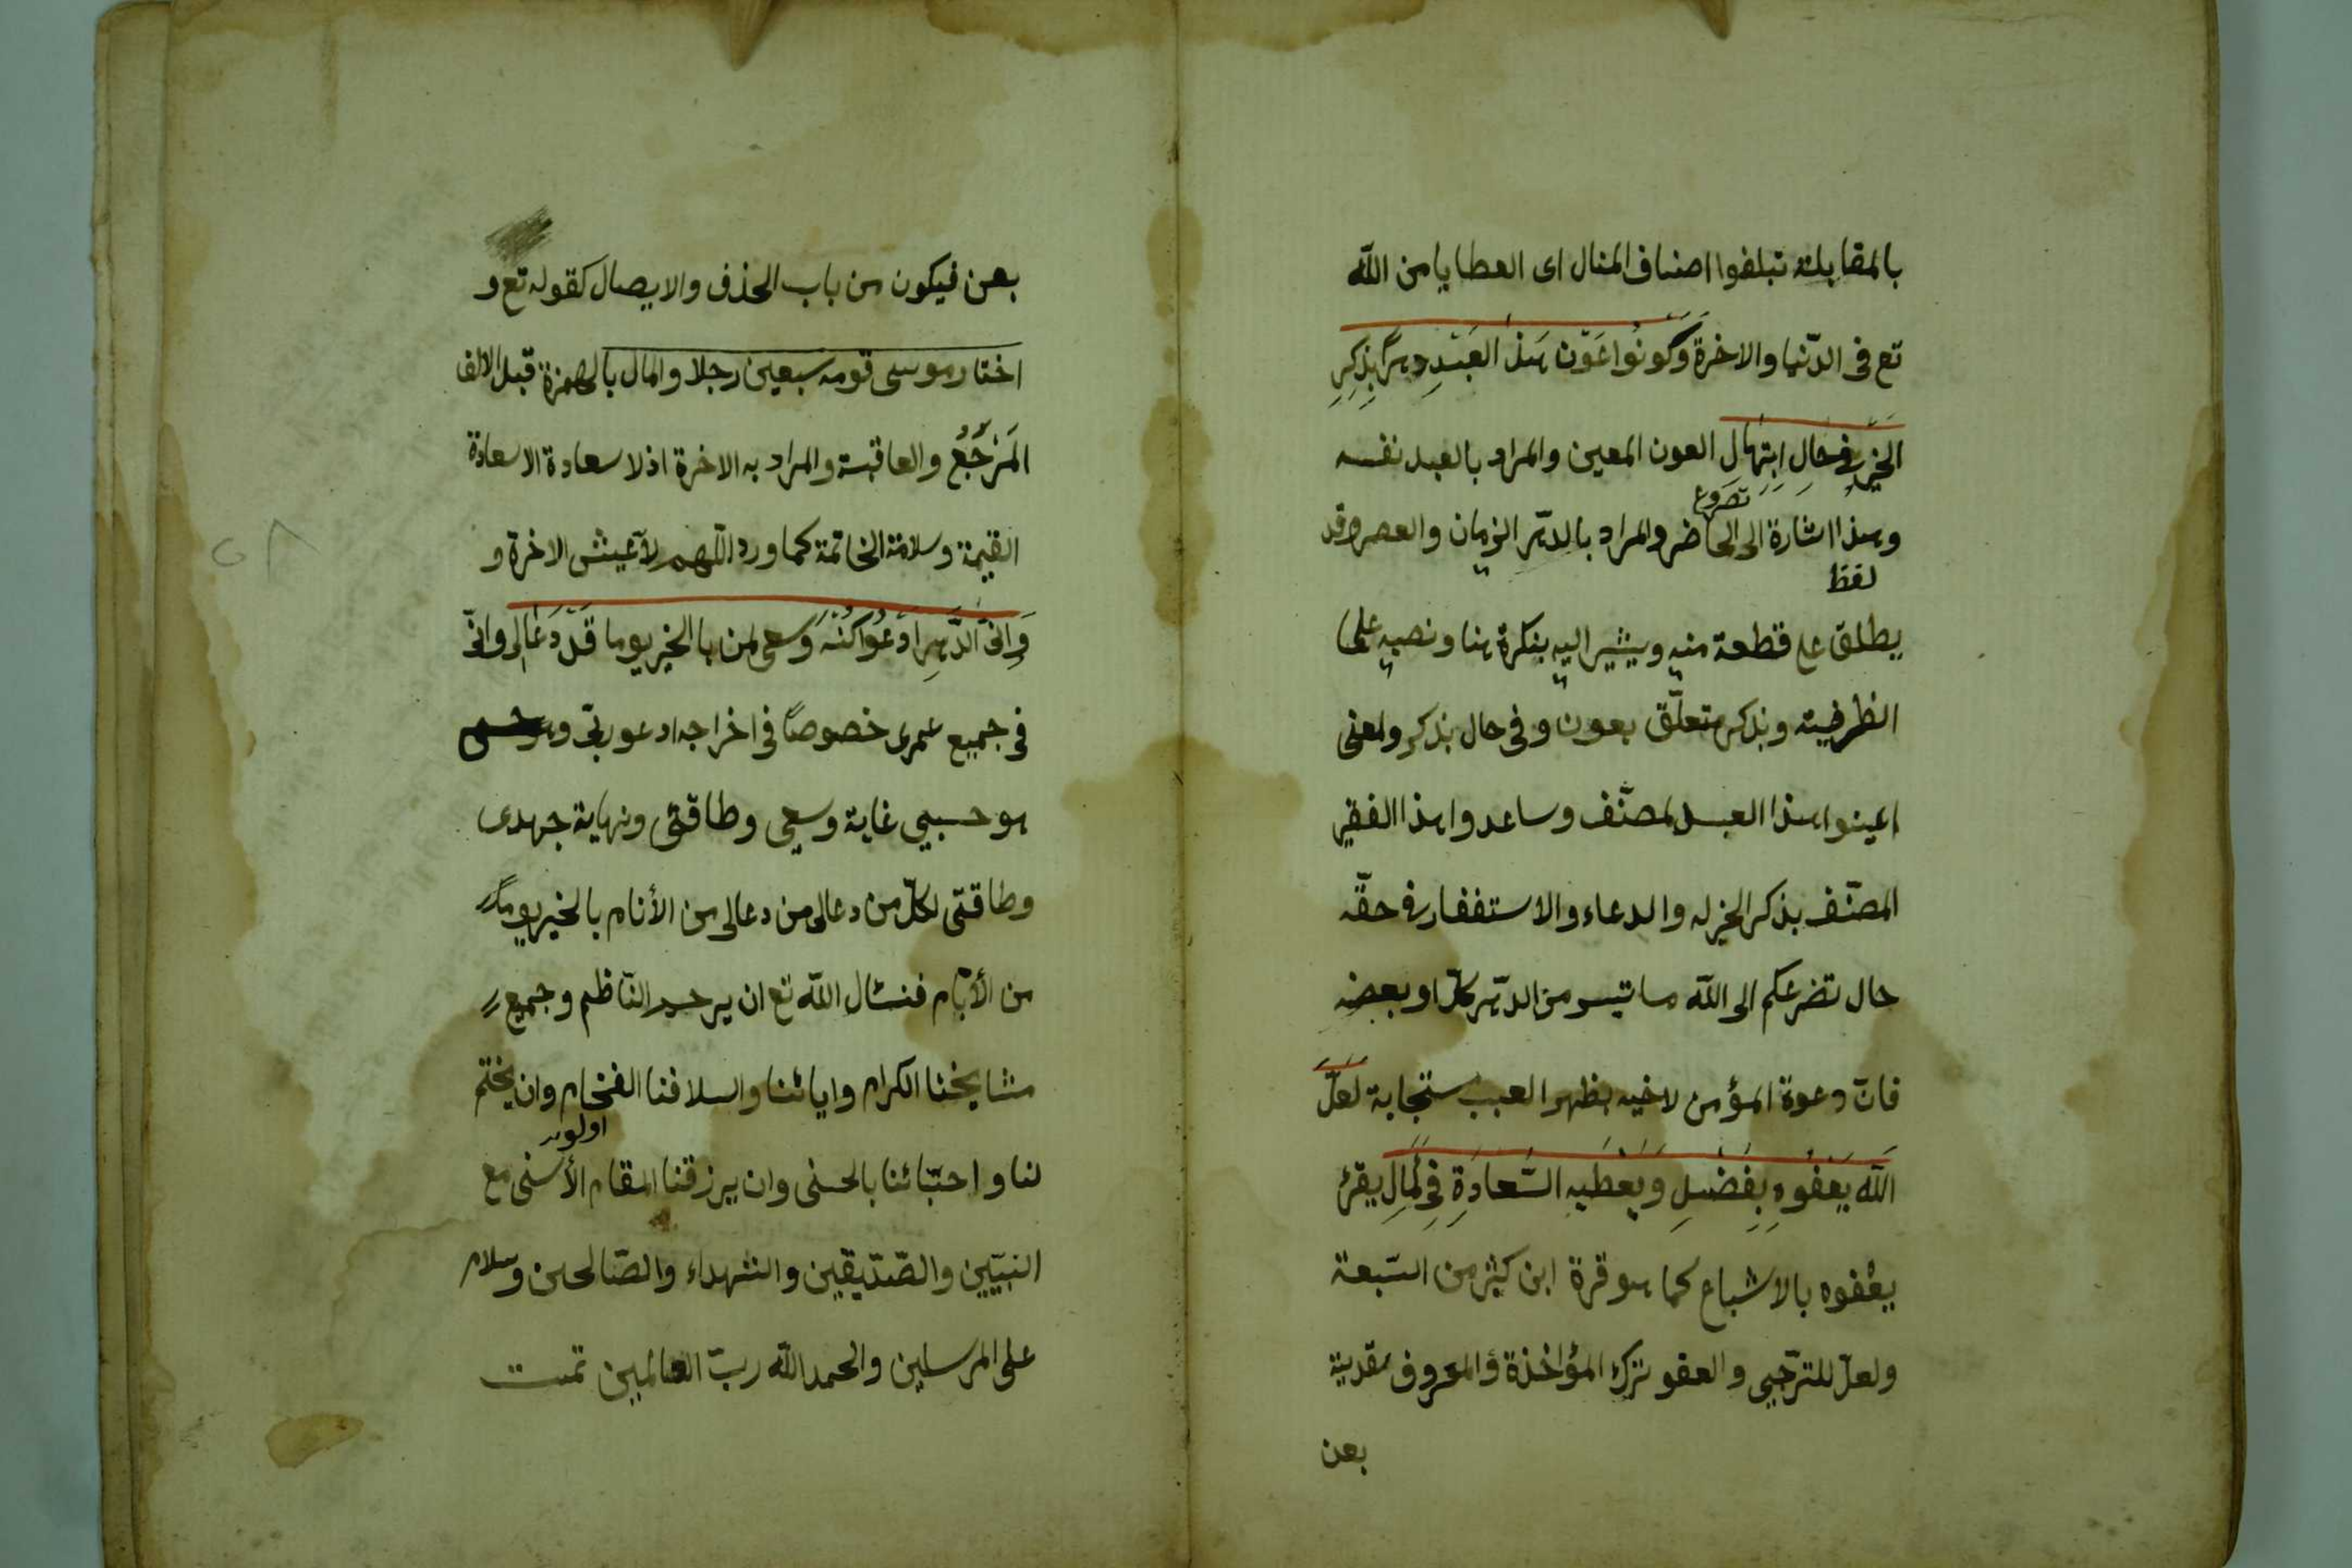 بالمقابلة تبلغوا اصناف المنال اى العطايا من الله
تع فى الدّنيا والاخرة وَكُونُوا عَوْنَ هذا العَبْدِ دهرًا بِذِكرِ
الخيرِ فى حَالِ ابْتِهَالِ العون المعين والمراد بالعبد نفسه
تضروع
وهذا اشارة الى الحاضر والمراد بالدّهر الزمان والعصر وقد
لفظ
يطلق على قطعة منه ويشير اليه بنكرة هنا ونصبه على
الظرفية وبذكر متعلّق بعون وفى حال بذكر ولمعنى
اعينوا هذا العبد لمصنّف وساعدوا هذا الفقير
المصنّف بذكر الخير له والدعاء والاستغفار فى حقّه
حال تضرعكم الى الله ما تيسر من الدّهر كلّه او بعضه
فانّ دعوة المؤمن لاخيه بظهر الغيب مستجابة لعلّ
الله يَعْفُوهِ بِفَضْلِ وَيُعْطِيهِ السَّعَادَةِ فى لمَالِ يقرئ
يعفوه بالاشباع كما هو قرة ابن كثير من السّبعة
ولعلّ للترّجى والعفو ترك المؤاخذة والمعروف تعدية
بعن
بعن فيكون من باب الحذف والايصال كقوله تع و
اختار موسى قومه سبعين رجلا والمال بالهمزة قبل الالف
المَرْجَعُ والعاقبة والمراد به الاخرة اذ لا سعادة الا سعادة
القيمة وسلامة الخاتمة كما ورد اللّهم لا عيش الاخرة و
وَاِنّى الدَّهرِ ادْعُوا كُنْهَ وُسعى لمن بالخير يوما قَدْ دَعَالِى وانّى
فى جميع عمرى خصوصًا فى اخراجه ادعو ربّى
هو حسبي غاية وسعى وطاقتى ونهاية جهدى
وطاقتى لكلّ من دعالى من دعالى من الأنام بالخير يومًا
من الأيّام فنسئال الله تع ان يرحم النّاظم وجميع
مشايخنا الكرام وابائنا واسلافنا الفخام وان يختم
اولور
لنا واحبّائنا بالحسنى وان يرزقنا المقام الأسنى مع
النبيّين والصّدّيقين والشهداء والصّالحين وسلام
على المرسلين والحمد الله ربّ العالمين تمت